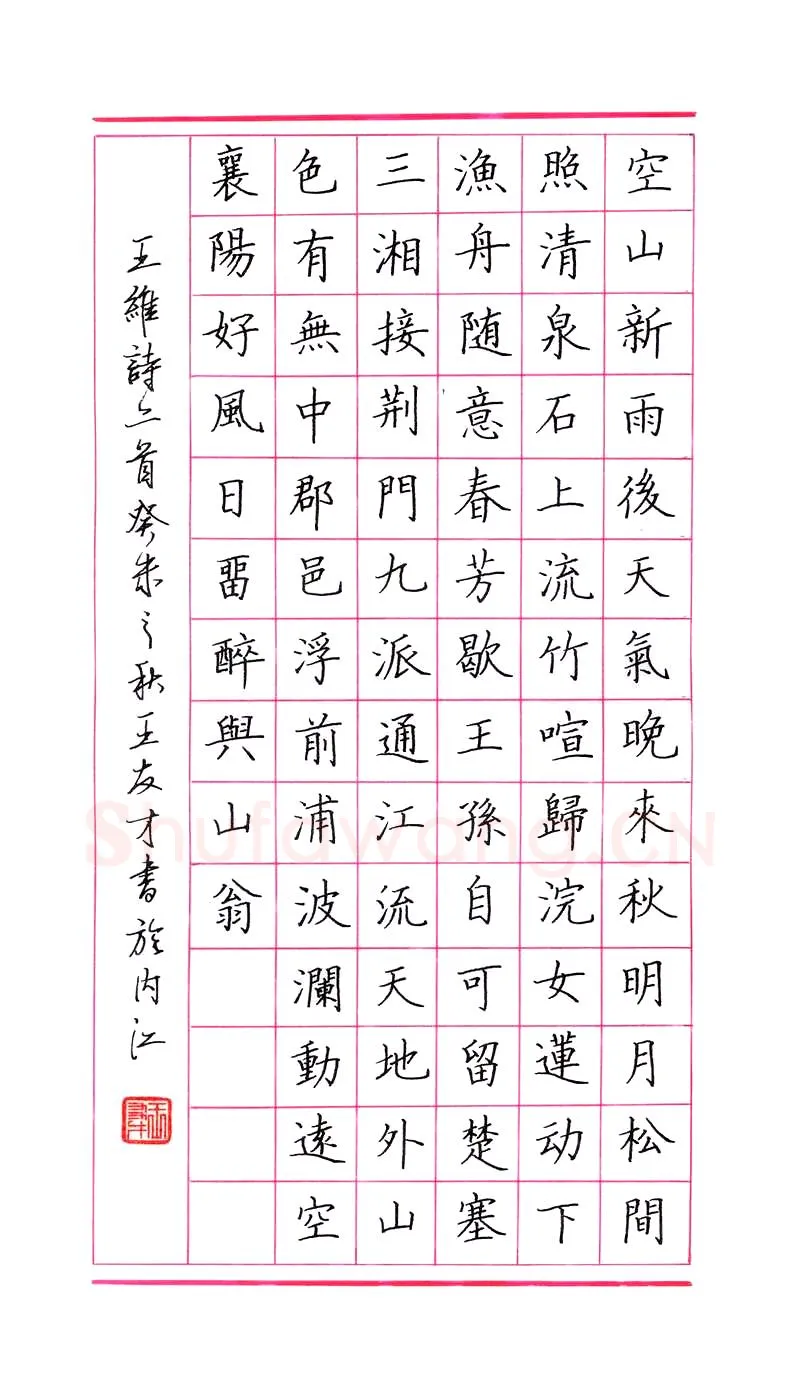 空山新雨後天氣晚來秋明月松間
照清泉石上流竹喧歸浣女蓮动下
漁舟随意春芳歇王孫自可留楚塞
三湘接荆門九派通江流天地外山
色有無中郡邑浮前浦波瀾動遠空
襄陽好風日畱醉與山翁
王維詩二首癸未之秋王友才書於内江
Shufawang.CN